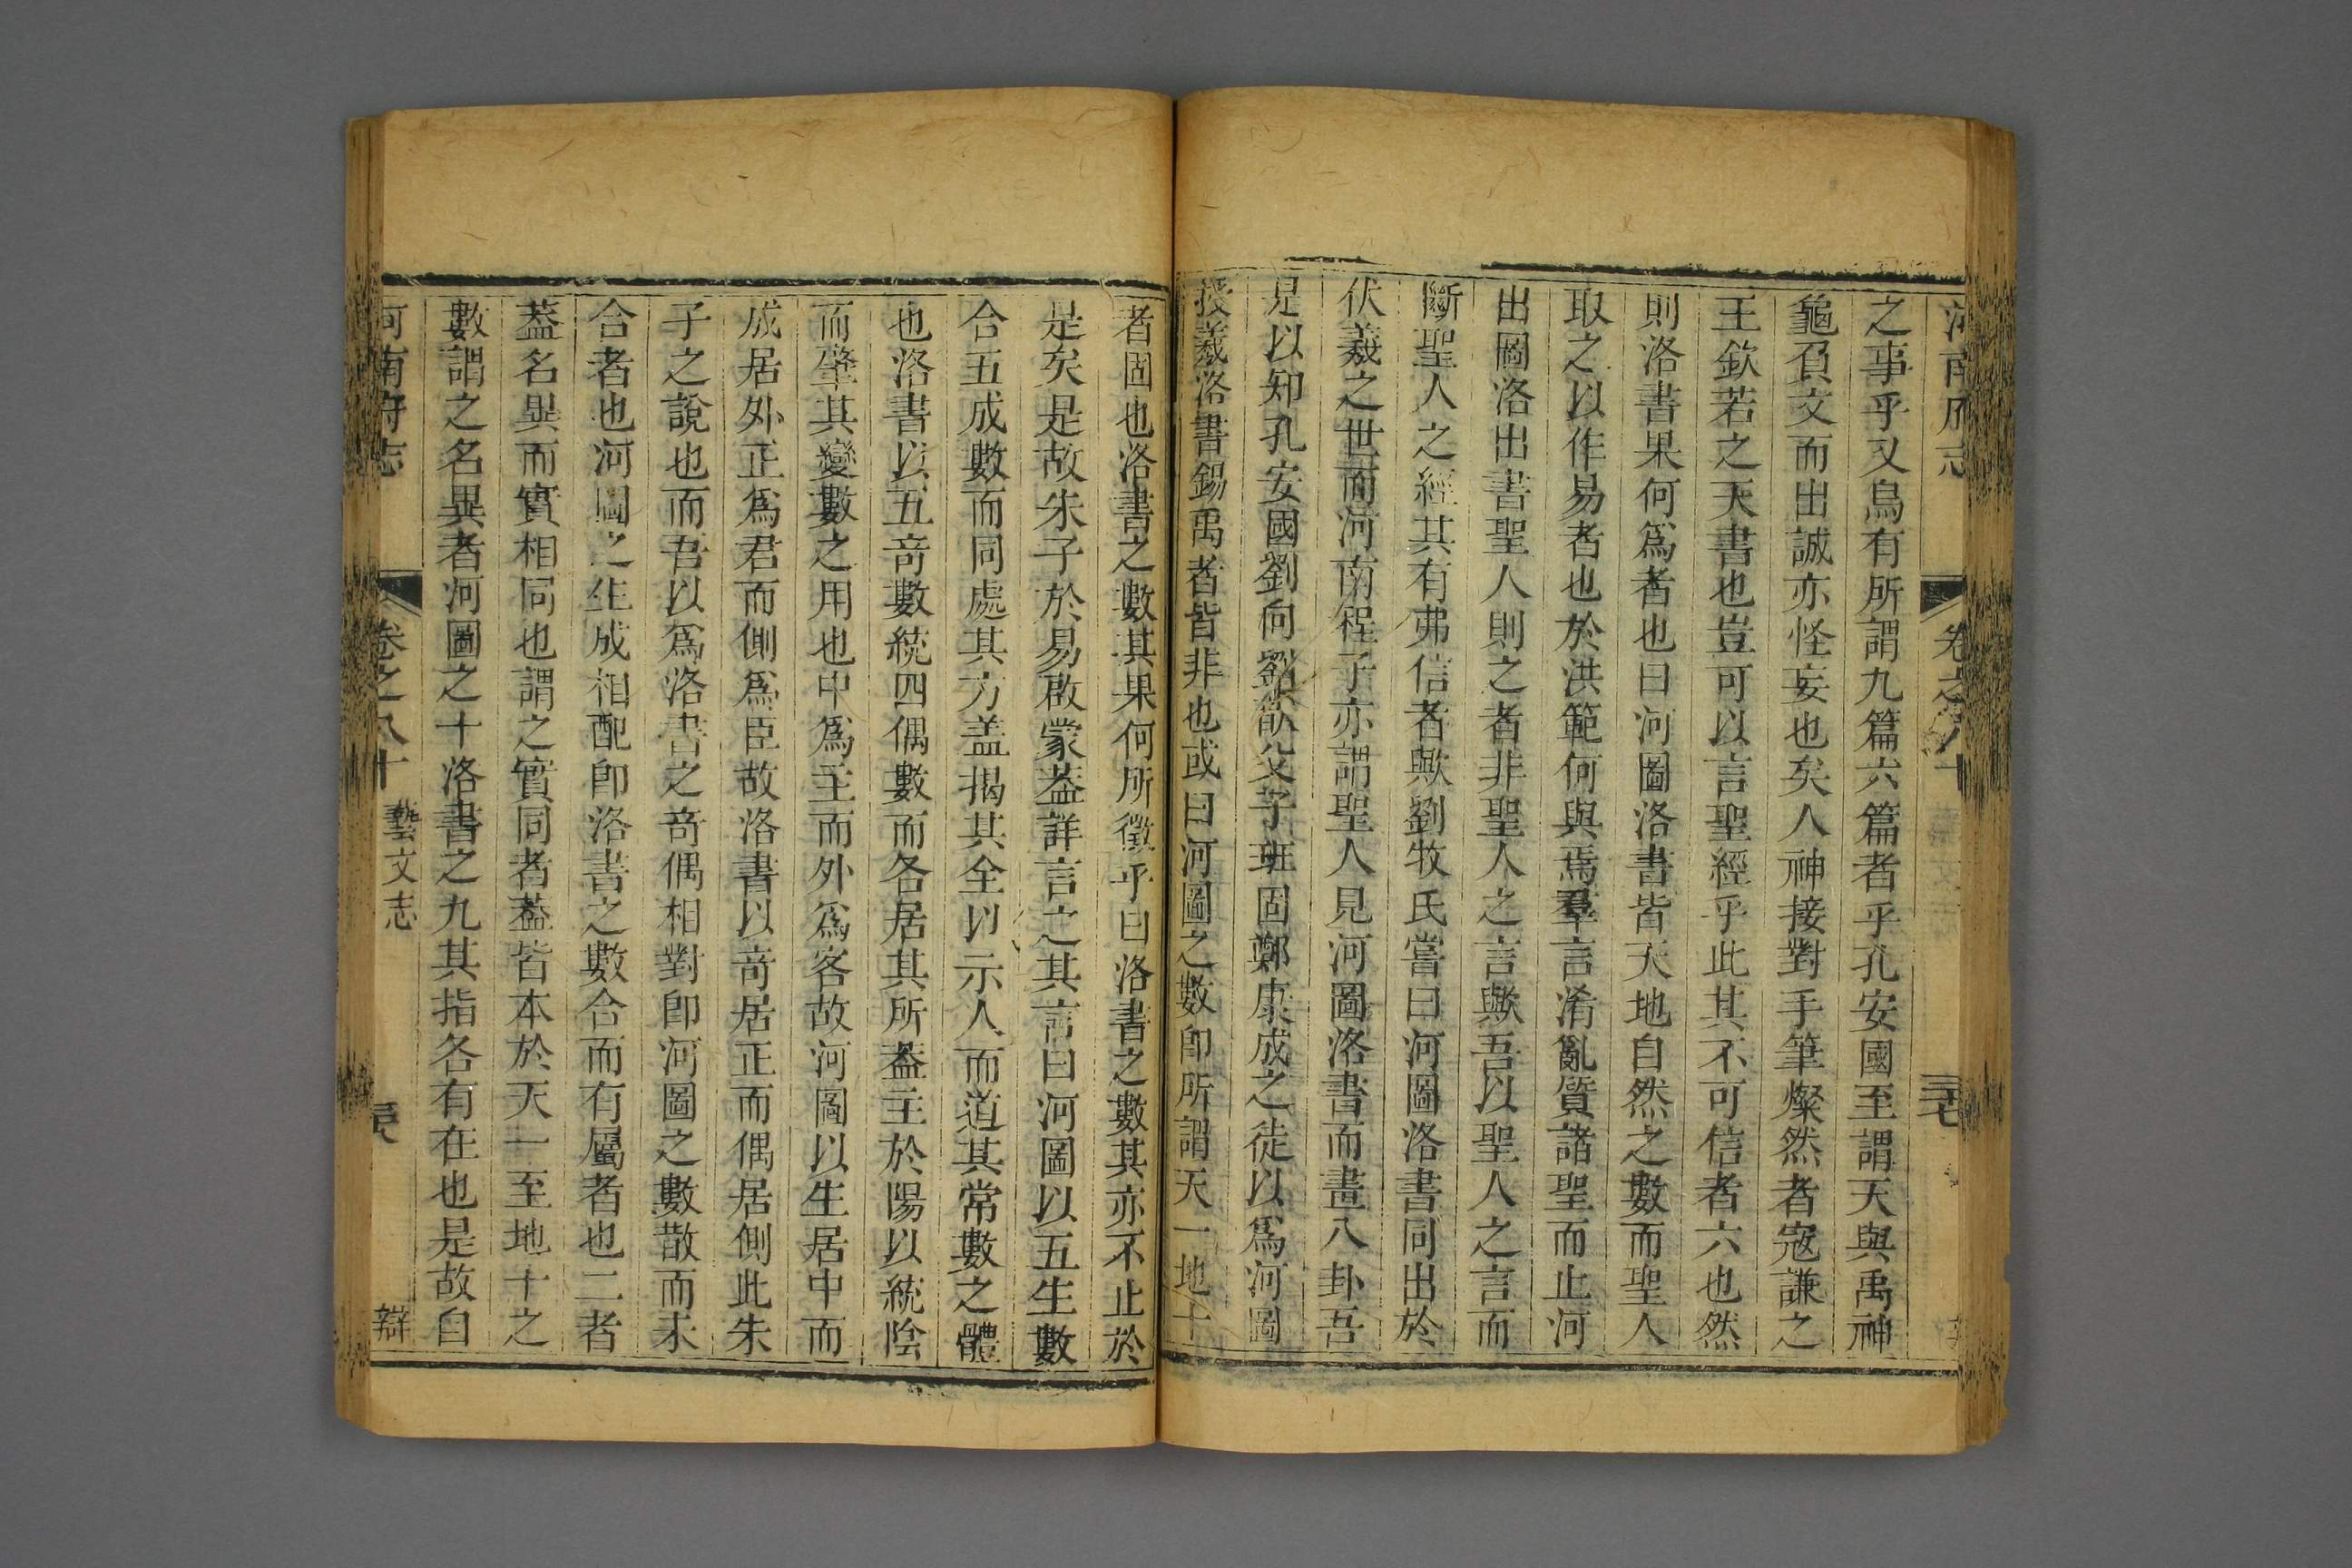 河南府志 卷之八十
之事乎又烏有所謂九篇六篇者乎孔安國至謂天與禹神
龜負文而出誠亦怪妄也矣人神接對手筆燦然者寇謙之
王欽若之天書也豈可以言聖經乎此其不可信者六也然
則洛書果何爲者也曰河圖洛書皆天地自然之數而聖人
取之以作易者也於洪範何與焉羣言淆亂質諸聖而止河
出圖洛出書聖人則之者非聖人之言歟吾以聖人之言而
斷聖人之經其有弗信者歟劉牧氏嘗曰河圖洛書同出於
伏羲之世而河南程子亦謂聖人見河圖洛書而畫八卦吾
是以知孔安國劉向劉歆父子班固鄭康成之徒以爲河圖
授羲洛書錫禹者皆非也或曰河圖之數卽所謂天一地十
者固也洛書之數其果何所徵乎曰洛書之數其亦不止於
是矣是故朱子於易啟蒙葢詳言之其言曰河圖以五生數
合五成數而同處其方盖揭其全以示人而道其常數之體
也洛書以五奇數統四偶數而各居其所葢主於陽以統陰
而肇其變數之用也中爲主而外爲客故河圖以生居中而
成居外正爲君而側爲臣故洛書以奇居正而偶居側此朱
子之說也而吾以爲洛書之奇偶相對卽河圖之數散而未
合者也河圖之生成相配卽洛書之數合而有屬者也二者
葢名異而實相同也謂之實同者葢皆本於天一至地十之
數謂之名異者河圖之十洛書之九其指各有在也是故自
河南府志 卷之八十 藝文志 辯